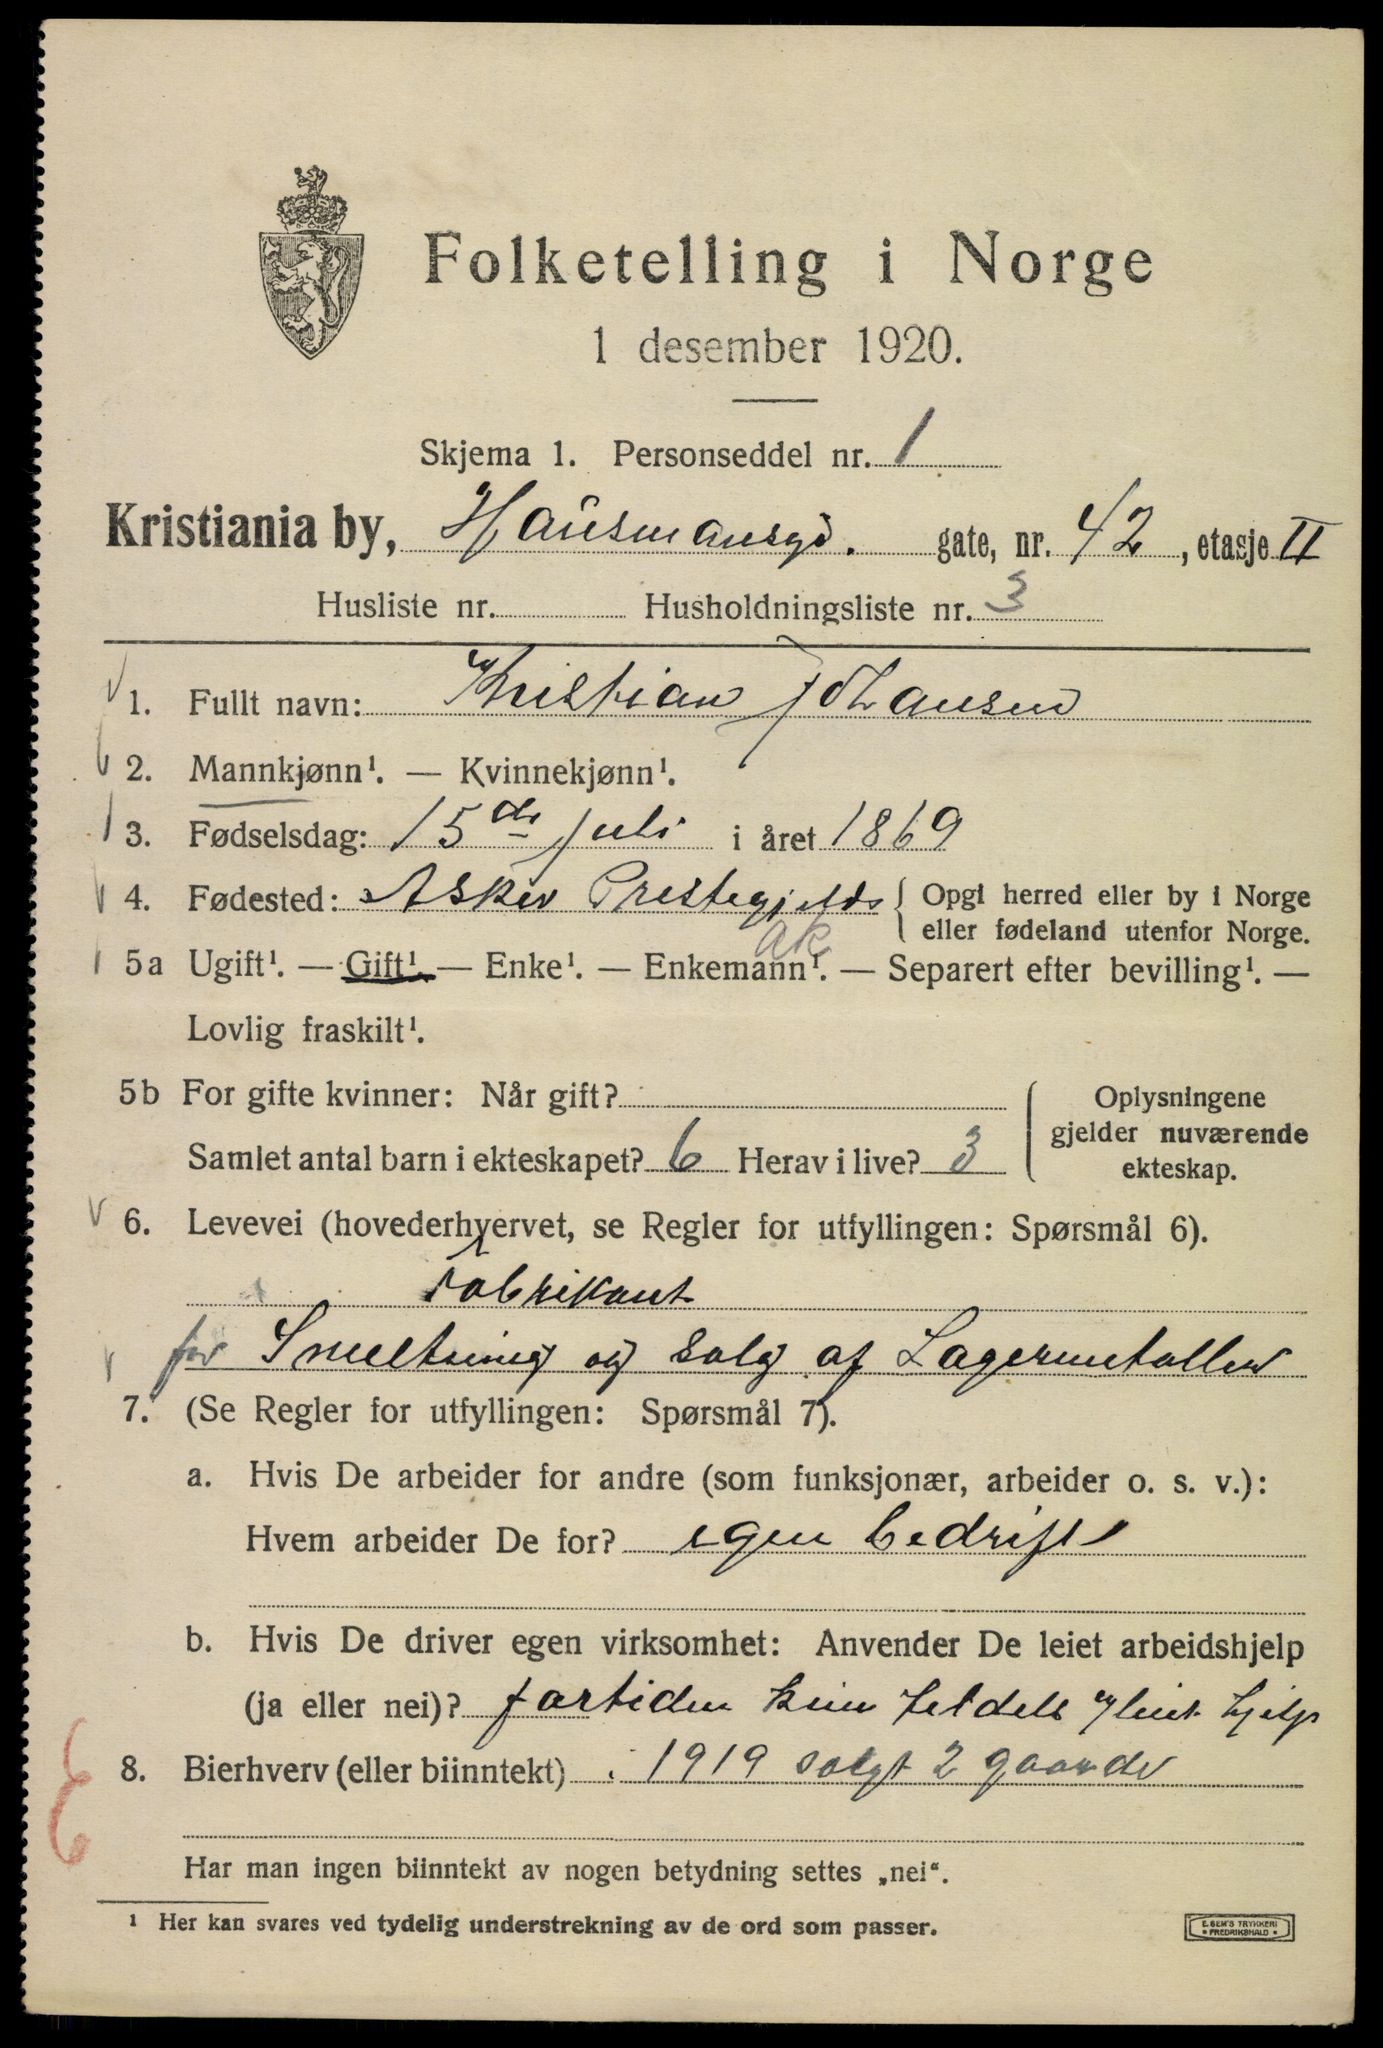 Folketelling i Norge
1 desember 1920.
Skjema 1. Personseddel nr. 1
Kristiania by, Hausmansgd. gate, nr. 42, etasje II
Husliste nr. Husholdningsliste nr. 3
1. Fullt navn: Kristian Johansen
2. Mannkjønn¹. — Kvinnekjønn¹.
3. Fødselsdag: 15de juli i året 1869
4. Fødested: Asker Prestegjelds { Opgi herred eller by i Norge
eller fødeland utenfor Norge.
ak
5a Ugift¹. — Gift¹. — Enke¹. — Enkemann¹. — Separert efter bevilling¹. —
Lovlig fraskilt¹.
5b For gifte kvinner: Når gift?
Samlet antal barn i ekteskapet? 6 Herav i live? 3
Oplysningene
gjelder nuværende
ekteskap.
6. Levevei (hovederhvervet, se Regler for utfyllingen: Spørsmål 6).
Fabrikant
for Smeltning og Salg af Lagermetaller
7. (Se Regler for utfyllingen: Spørsmål 7).
a. Hvis De arbeider for andre (som funksjonær, arbeider o. s. v.):
Hvem arbeider De for? egen bedrift
b. Hvis De driver egen virksomhet: Anvender De leiet arbeidshjelp
(ja eller nei)? fortiden kun hjelp
8. Bierhverv (eller biinntekt) i 1919 solgt 2 gaarder
Har man ingen biinntekt av nogen betydning settes „nei“.
¹ Her kan svares ved tydelig understrekning av de ord som passer.
E. SEM'S TRYKKERI
• FREDRIKSHALD •